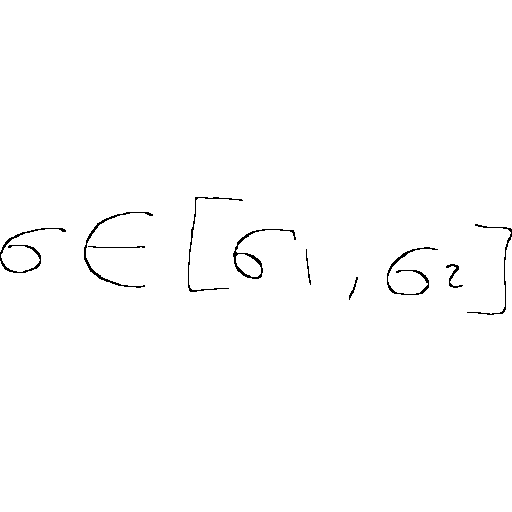 σ ∈ [σ₁, σ₂]